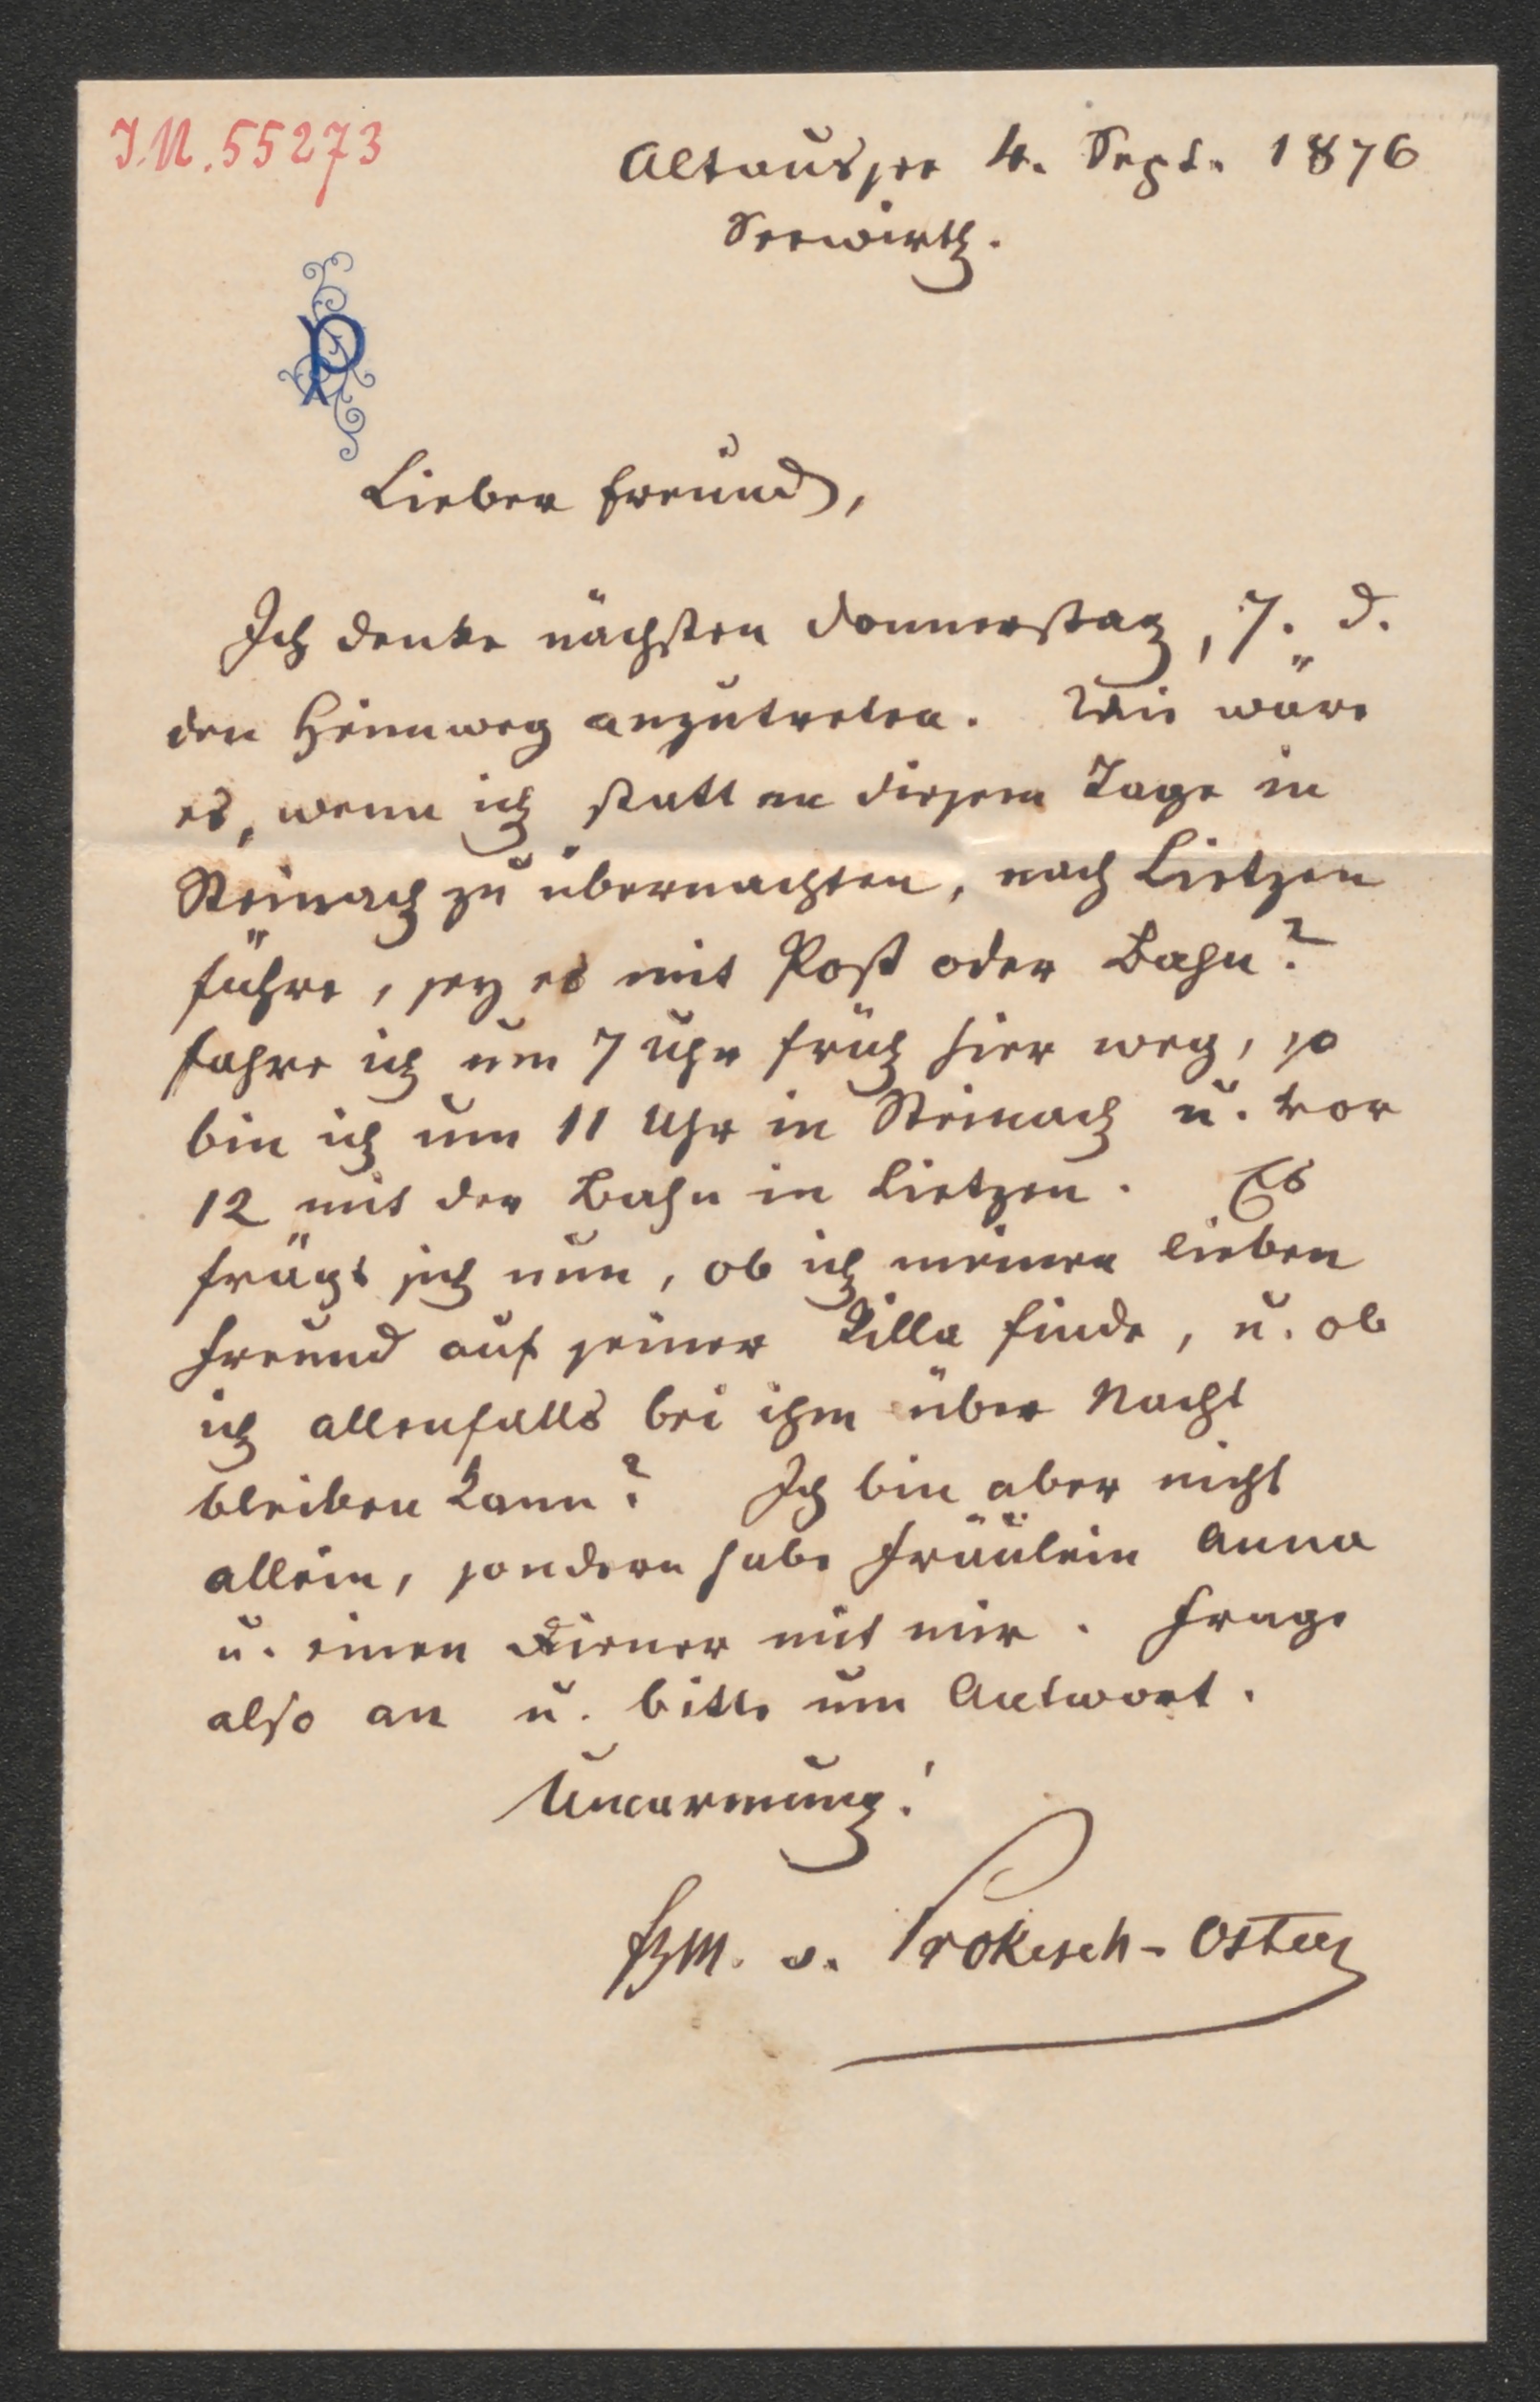 I.N. 55273
Altaussee 4. Sept. 1876
Seewirth.
P
Lieber Freund,
Ich denke nächsten Donnerstag, 7. d.
den Heimweg anzutreten. Wie wäre
es, wenn ich statt an diesem Tage in
Steinach zu übernachten, nach Lietzen
führe, sey es mit Post oder Bahn?
Fahre ich um 7 Uhr früh hier weg, so
bin ich um 11 Uhr in Steinach u. vor
12 mit der Bahn in Lietzen. Es
frägt sich nun, ob ich meinen lieben
Freund auf seiner Villa finde, u. ob
ich allenfalls bei ihm über Nacht
bleiben kann? Ich bin aber nicht
allein, sondern habe Fräulein Anna
u. einen Diener mit mir. Frage
also an u. bitte um Antwort.
Umarmung!
FZM. v. Prokesch-Osten